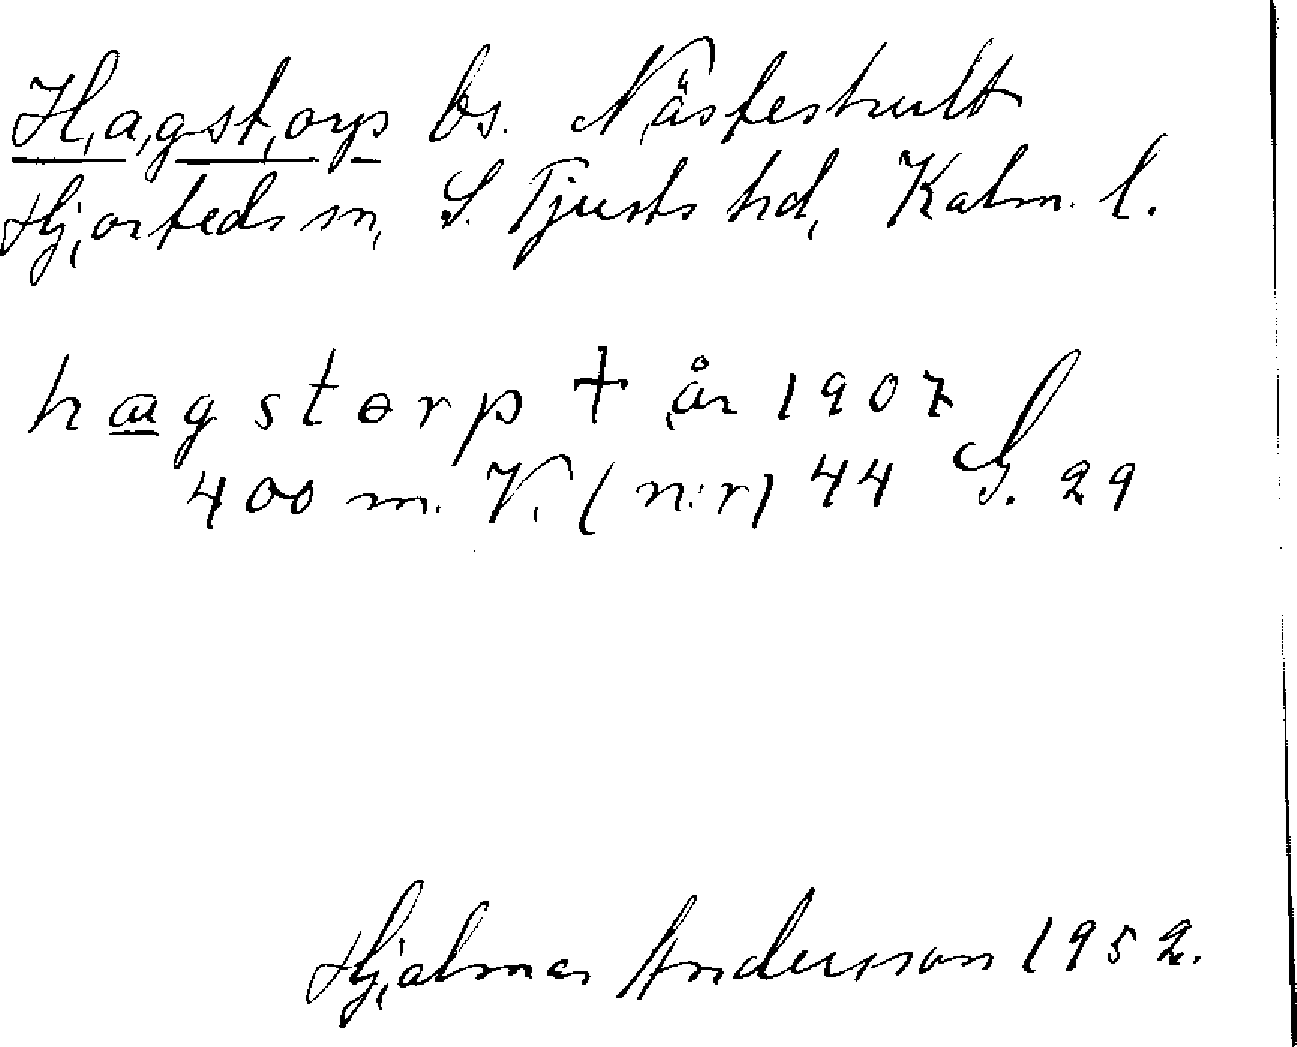 Hagstorp bs. Nästeshult
Hjorteds sn, S. Tjusts hd, Kalm. l.
hagstɵrp † år 1907
400 m. V. (n:r) 44 S. 29
Hjalmar Andersson 1952.